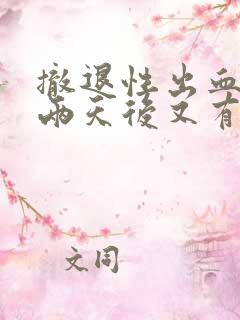 撤退性出血
两天後又有
文同